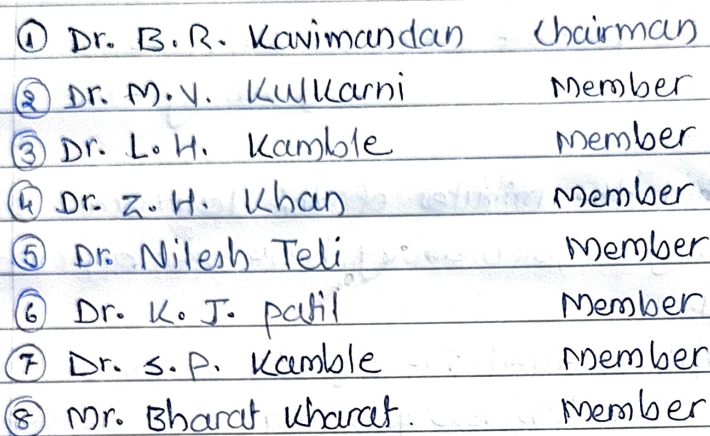 ① Dr. B. R. Kavimandan - Chairman
② Dr. M. V. Kulkarni Member
③ Dr. L. H. Kamble Member
④ Dr. Z. H. Khan Member
⑤ Dr. Nilesh Teli Member
⑥ Dr. K. J. Patil Member
⑦ Dr. S. P. Kamble Member
⑧ Mr. Bharat Kharat. Member